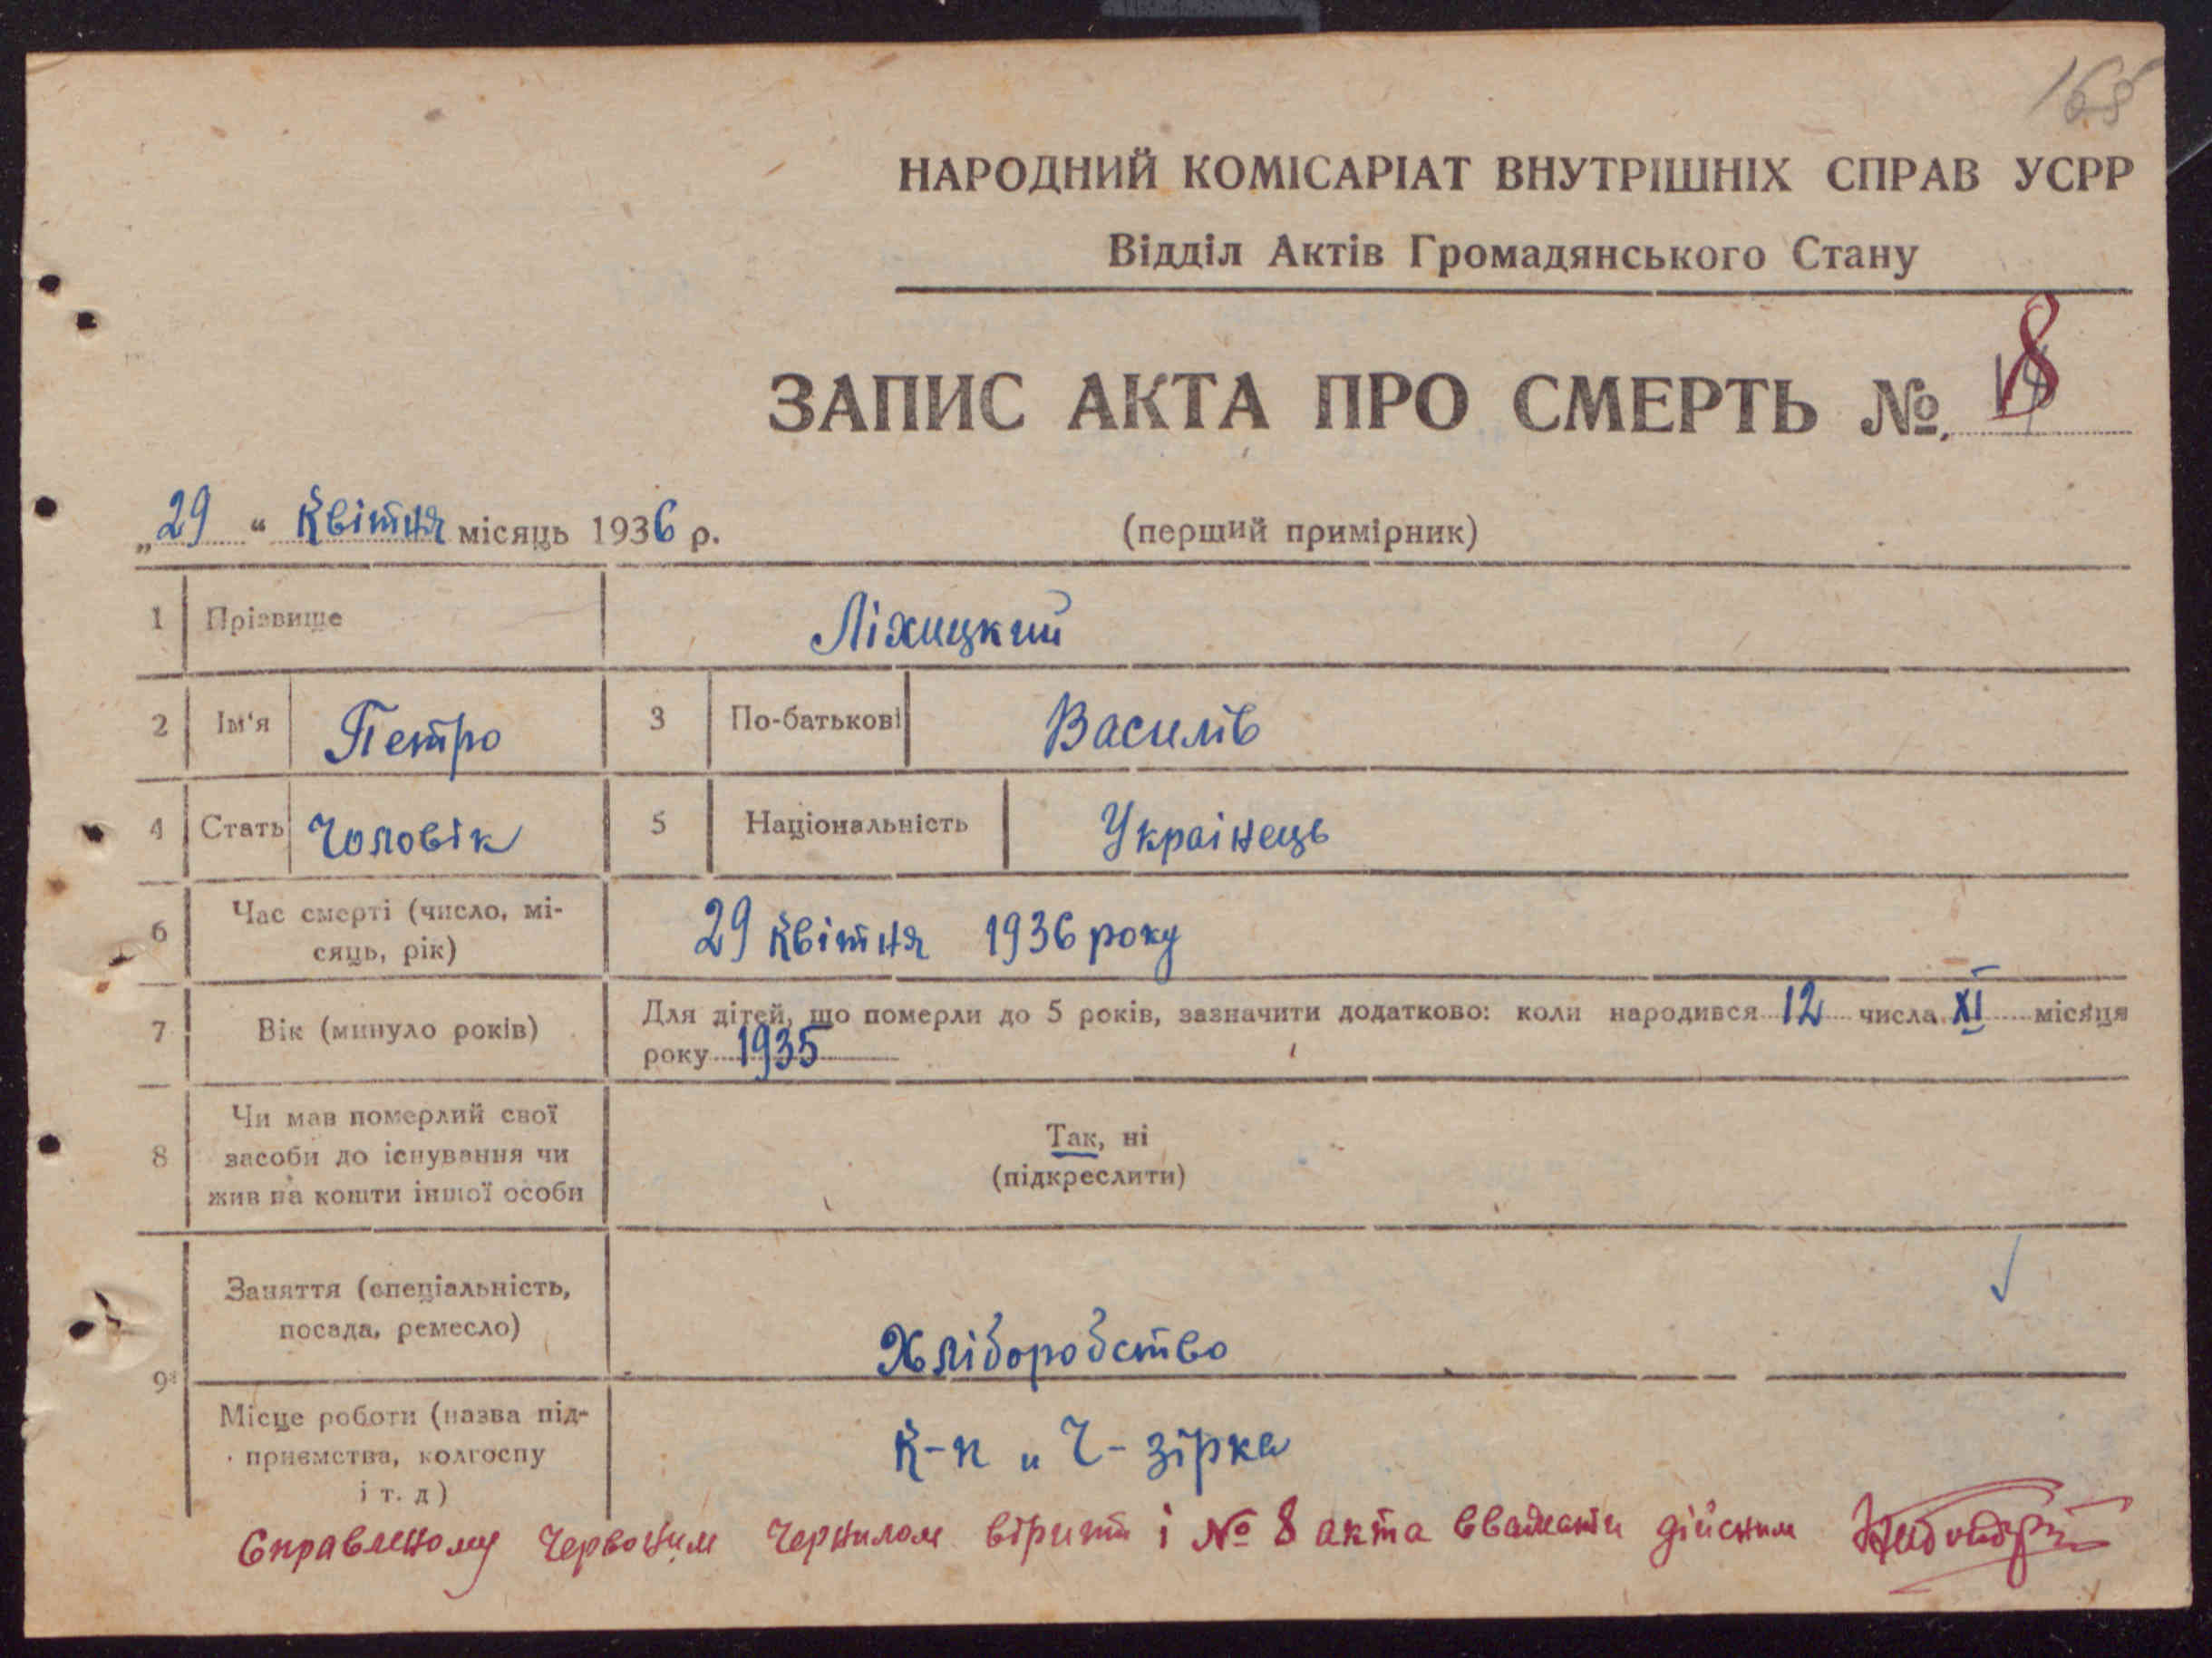 168
НАРОДНИЙ КОМІСАРІАТ ВНУТРІШНІХ СПРАВ УСРР
Відділ Актів Громадянського Стану
ЗАПИС АКТА ПРО СМЕРТЬ № 8
„29“ Квітня місяць 1936 р. (перший примірник)
1 Прізвище Ліхицкий
2 Ім'я Петро 3 По-батькові Василів
4 Стать Чоловік 5 Національність Українець
6 Час смерті (число, мі-
сяць, рік) 29 Квітня 1936 року
7 Вік (минуло років) Для дітей, що померли до 5 років, зазначити додатково: коли народився 12 числа XI місяця
року 1935
8 Чи мав померлий свої
засоби до існування чи
жив на кошти іншої особи
Так, ні
(підкреслити)
9 Заняття (спеціальність,
посада, ремесло) Хліборобство
Місце роботи (назва під-
приємства, колгоспу
і т. д) К-п „ Ч-зірка
Справленому червоним чернилом вірити і № 8 акта вважати дійсним